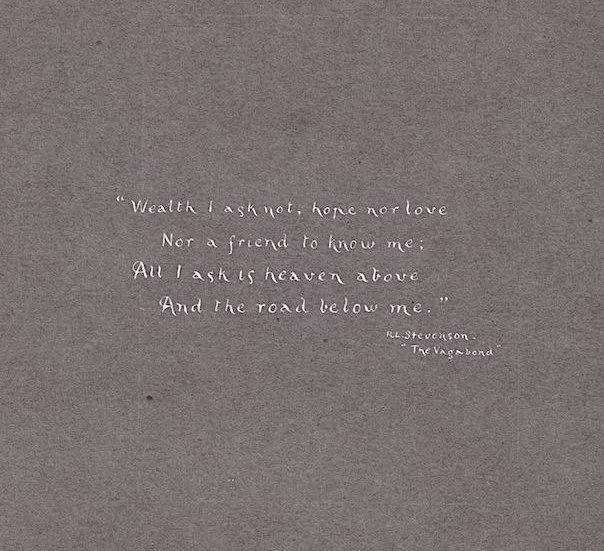 "Wealth I ask not, hope nor love
Nor a friend to know me;
All I ask is heaven above
And the road below me."
R.L. Stevenson.
"The Vagabond"